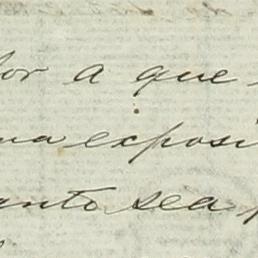 por a que
na exposi
anto sea